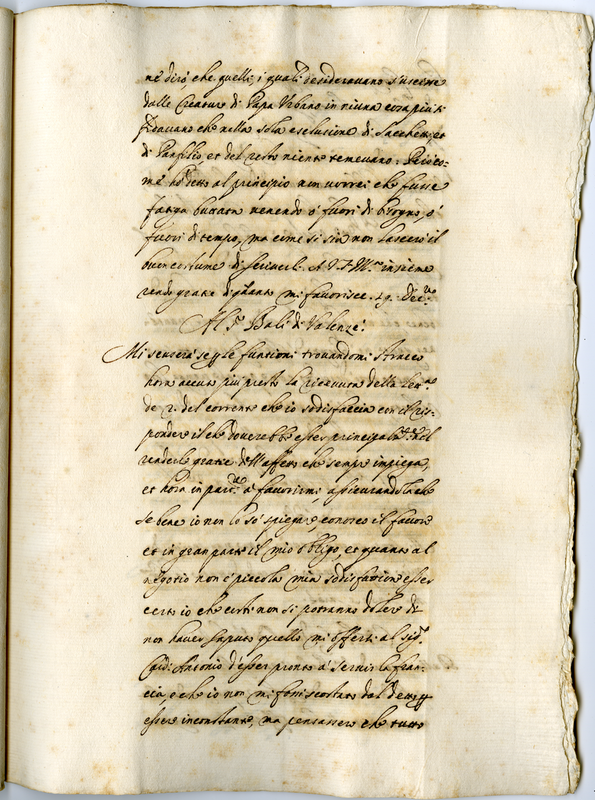 né dirò che quelli, i quali desideravano s'uscisse
dalle Creature di Papa Urbano in niuna cosa più si
fidavano che nella sola esclusione di Sacchetti, et
di Panfilio, et del resto niente temevano. Però co-
me ho detto al principio non vorrei che fusse
fatiga buttata venendo ò fuori di bisogno, ò
fuori di tempo, ma come si sia non lascerò il
buon costume di scriverli. A V.S. Ill.ma insieme
rendo gratie di quanto mi favorisce. 19. Dec.re
Al S.r Balì di Valenzé.
Mi scuserà se le funtioni trovandomi stracco
hora accuso più presto la ricevuta della let.ra
de 2. del corrente che io sodisfaccia con el ris-
pondere il che doverebbe esser principalm.te nel
renderle gratie dell'affetto che sempre impiega,
et hora in part.re à favorirmi, assicurandola che
se bene io non lo sò spiegare, conosco il favore
et in gran parte il mio obligo, et quanto al
negotio non è piccola mia sodisfazione esser
certo io che certi non si potranno dolere di
non haver saputo quello mi offersi al sig.r
Card. Antonio d'esser pronto à servir la Fran-
cia, e che io non mi fossi scostato dal detto
essere inconstante, ma pensassero che tutto